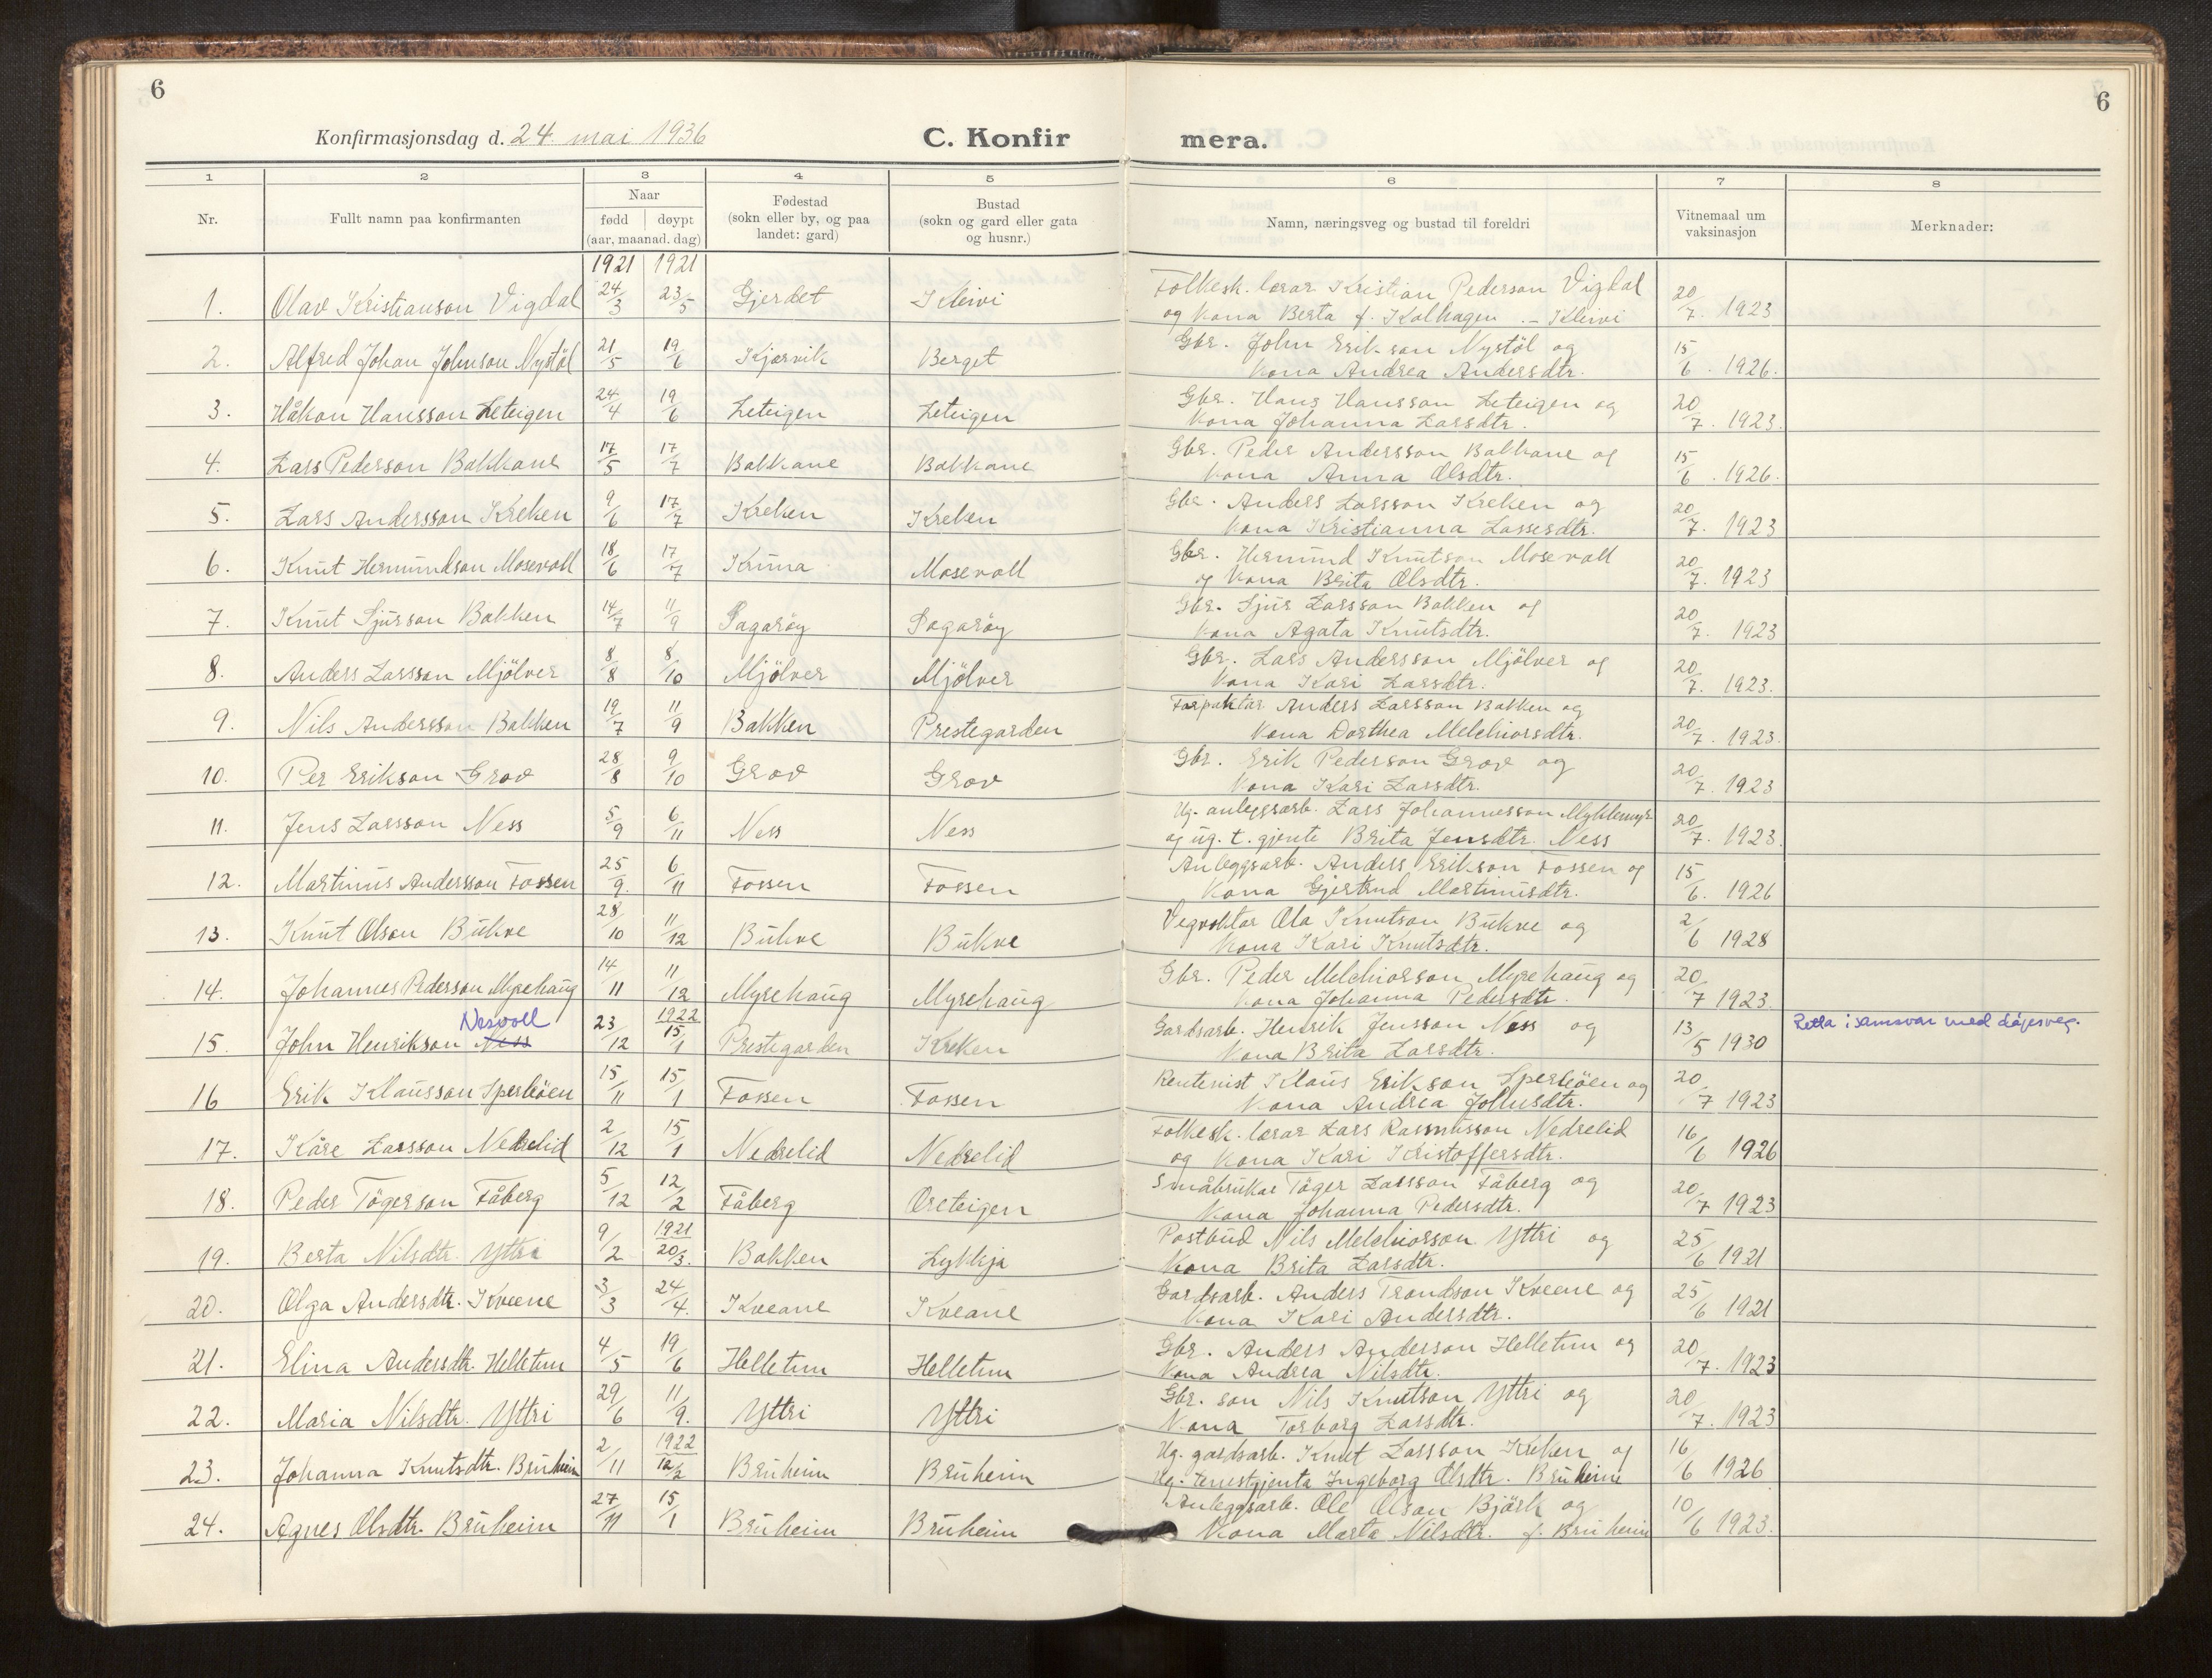 6
6
Konfirmasjonsdag d. 24. mai 1936
C. Konfir mera.
1 2 3 4 5 6 7 8
Nr. Fullt namn paa konfirmanten Naar fødd døypt (aar, maanad. dag) Fødestad (sokn eller by, og paa landet: gard) Bustad (sokn og gard eller gata og husnr.) Namn, næringsveg og bustad til foreldri Vitnemaal um vaksinasjon Merknader:
1921 1921
1. Olav Kristianson Vigdal 24/3 23/5 Gjerdet Kleivi Folkesk. lærar Kristian Pederson Vigdal 20/7. 1923
og kona Berta f. Kalhagen .- Kleivi
2. Alfred Johan Johnson Nystöl 21/5 19/6 Kjærvik Berget Gbr. John Erikson Nystöl og 15/6. 1926.
kona Andrea Andersdtr.
3. Håkon Hansson Leteigen 24/4 19/6 Leteigen Leteigen Gbr. Hans Hansson Leteigen og 20/7. 1923.
kona Johanna Larsdtr.
4. Lars Pederson Bakkane 17/5 17/7 Bakkane Bakkane Gbr. Peder Andersson Bakkane og 15/6. 1926.
kona Anna Olsdtr.
5. Lars Andersson Kreken 9/6 17/7 Kreken Kreken Gbr. Anders Larsson Kreken og 20/7. 1923
kona Kristianna Lassesdtr.
6. Knut Hermundson Mosevoll 18/6 17/7 Kruna Mosevoll Gbr. Hermund Knutson Mosevoll 20/7. 1923
og kona Brita Olsdtr.
7. Knut Sjurson Bakken 14/7 11/9 Sagarøy Sagarøy Gbr. Sjur Larsson Bakken og 20/7. 1923
kona Agata Knutsdtr.
8. Anders Larsson Mjölver 8/8 8/10 Mjölver Mjölver Gbr. Lars Andersson Mjölver og 20/7. 1923.
kona Kari Larsdtr.
9. Nils Andersson Bakken 19/7 11/9 Bakken Prestegarden Forpaktar Anders Larsson Bakken og 20/7. 1923.
kona Dorthea Melchiorsdtr.
10. Per Erikson Grov 28/8 9/10 Grov Grov Gbr. Erik Pederson Grov og 20/7. 1923
kona Kari Larsdtr.
11. Jens Larsson Ness 5/9 6/11 Ness Ness Ug. anleggsarb. Lars Johannesson Myklemyr 20/7. 1923.
og ug. t. gjente Brita Jensdtr. Ness
12. Martinus Andersson Fossen 25/9. 6/11 Fossen Fossen Anleggsarb. Anders Erikson Fossen og 15/6. 1926
kona Gjertrud Martinusdtr.
13. Knut Olson Bukve 28/10 11/12 Bukve Bukve Vegvaktar Ola Knutson Bukve og 2/6 1928
kona Kari Knutsdtr.
14. Johannes Pederson Myrehaug 14/11 11/12 Myrehaug Myrehaug Gbr. Peder Melchiorson Myrehaug og 20/7 1923.
kona Johanna Pedersdtr.
Nesvoll
1922
15. John Henrikson Ness 23/12 15/1 Prestegarden Kreken Gardsarb. Henrik Jensson Ness og 13/5 1930 Retta i samsvar med
kona Brita Larsdtr.
16 Erik Klausson Sperleöen 15/11 15/1 Fossen Fossen Rentenist Klaus Erikson Sperleöen og 20/7 1923
kona Andrea
17. Kåre Larsson Nedrelid 2/12 15/1 Nedrelid Nedrelid Folkesk. lærar Lars Rasmusson Nedrelid 16/6 1926
og kona Kari Kristoffersdtr.
18. Peder Tögerson Fåberg 5/12 12/2 Fåberg Oreteigen Småbrukar Töger Larsson Fåberg og 20/7 1923
kona Johanna Pedersdtr.
1921
19. Berta Nilsdtr. Yttri 9/2 20/3. Bakken Lykkja Postbud Nils Melchiorsson Yttri og 25/6 1921
kona Brita Larsdtr.
20. Olga Andersdtr. Kveene 3/3 24/4. Kveane Kveane Gardsarb. Anders Trondson Kveene og 25/6 1921
kona Kari Andersdtr.
21. Elina Andersdtr. Helletun 4/5 19/6 Helletun Helletun Gbr. Anders Anderson Helletun og 20/7. 1923
kona Andrea Nilsdtr.
22. Maria Nilsdtr. Yttri 29/6 11/9. Yttri Yttri Gbr. son Nils Knutson Yttri og 20/7. 1923
kona Torborg Larsdtr.
1922
23. Johanna Knutsdtr. Bruheim 2/11 12/2 Bruheim Bruheim Ug. gardsarb. Knut Larsson Kreken og 16/6 1926
Ug. tenestgjenta Ingeborg Olsdtr. Bruheim
24. Agnes Olsdtr. Bruheim 27/11 15/1 Bruheim Bruheim Anleggsarb. Ole Olson Björk og 10/6 1923.
kona Marta Nilsdtr. f. Bruheim